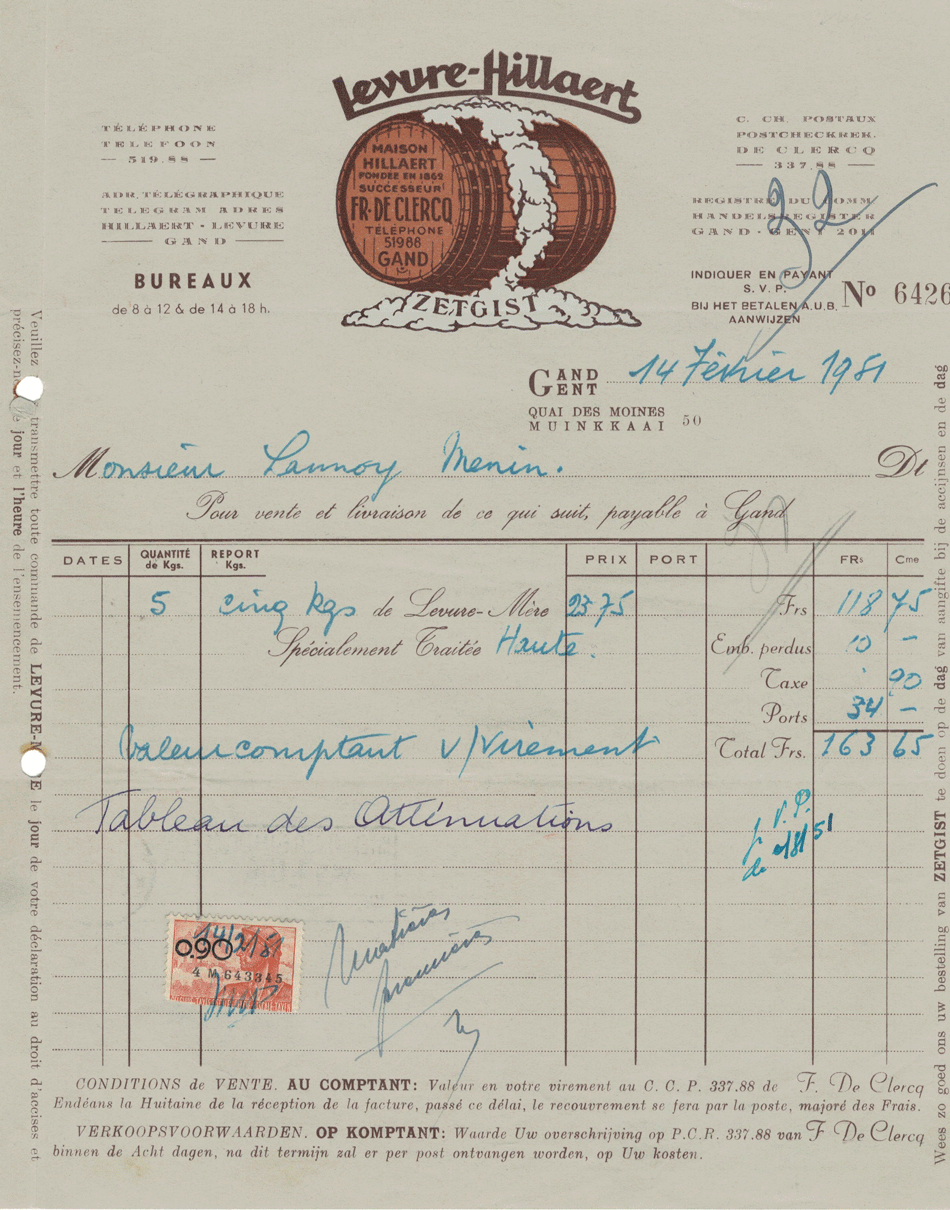 Levure-Hillaert
TÉLÉPHONE
TELEFOON
— 519.88 —
ADR. TÉLÉGRAPHIQUE
TELEGRAM ADRES
HILLAERT - LEVURE
GAND
BUREAUX
de 8 à 12 & de 14 à 18 h.
MAISON
HILLAERT
FONDÉE EN 1862
SUCCESSEUR
FR. DE CLERCQ
TÉLÉPHONE
51988
GAND
ZETGIST
C. CH. POSTAUX
POSTCHECKREK.
DE CLERCQ
— 337.88 —
REGISTRE DU COMM
HANDELSREGISTER
GAND - GENT 2011
32
INDIQUER EN PAYANT
S. V. P.
BIJ HET BETALEN A.U.B.
AANWIJZEN
No 6426
GAND
GENT
14 Février 1951
QUAI DES MOINES
MUINKKAAI 50
Monsieur Lannoy Menin. Dt
Pour vente et livraison de ce qui suit, payable à Gand
DATES QUANTITÉ de Kgs. REPORT Kgs. PRIX PORT FRs Cme
5 cinq kgs de Levure-Mère 23 75 Frs 118 75
Spécialement Traitée Haute. Emb. perdus 10 –
Taxe 90
Ports 34 –
Valeur comptant v/virement Total Frs. 163 65
Tableau des Atténuations
V. P.
de
14/2/51
0.90
4 M 643345
Matières
premières
CONDITIONS de VENTE. AU COMPTANT: Valeur en votre virement au C. C. P. 337.88 de F. De Clercq
Endéans la Huitaine de la réception de la facture, passé ce délai, le recouvrement se fera par la poste, majoré des Frais.
VERKOOPSVOORWAARDEN. OP KOMPTANT: Waarde Uw overschrijving op P.C.R. 337.88 van F De Clercq
binnen de Acht dagen, na dit termijn zal er per post ontvangen worden, op Uw kosten.
Veuillez transmettre toute commande de LEVURE-M E le jour de votre déclaration au droit d'accises et
précisez-n jour et l'heure de l'ensemencement.
Wees zo goed ons uw bestelling van ZETGIST te doen op de dag van aangifte bij de accijnsen en de dag